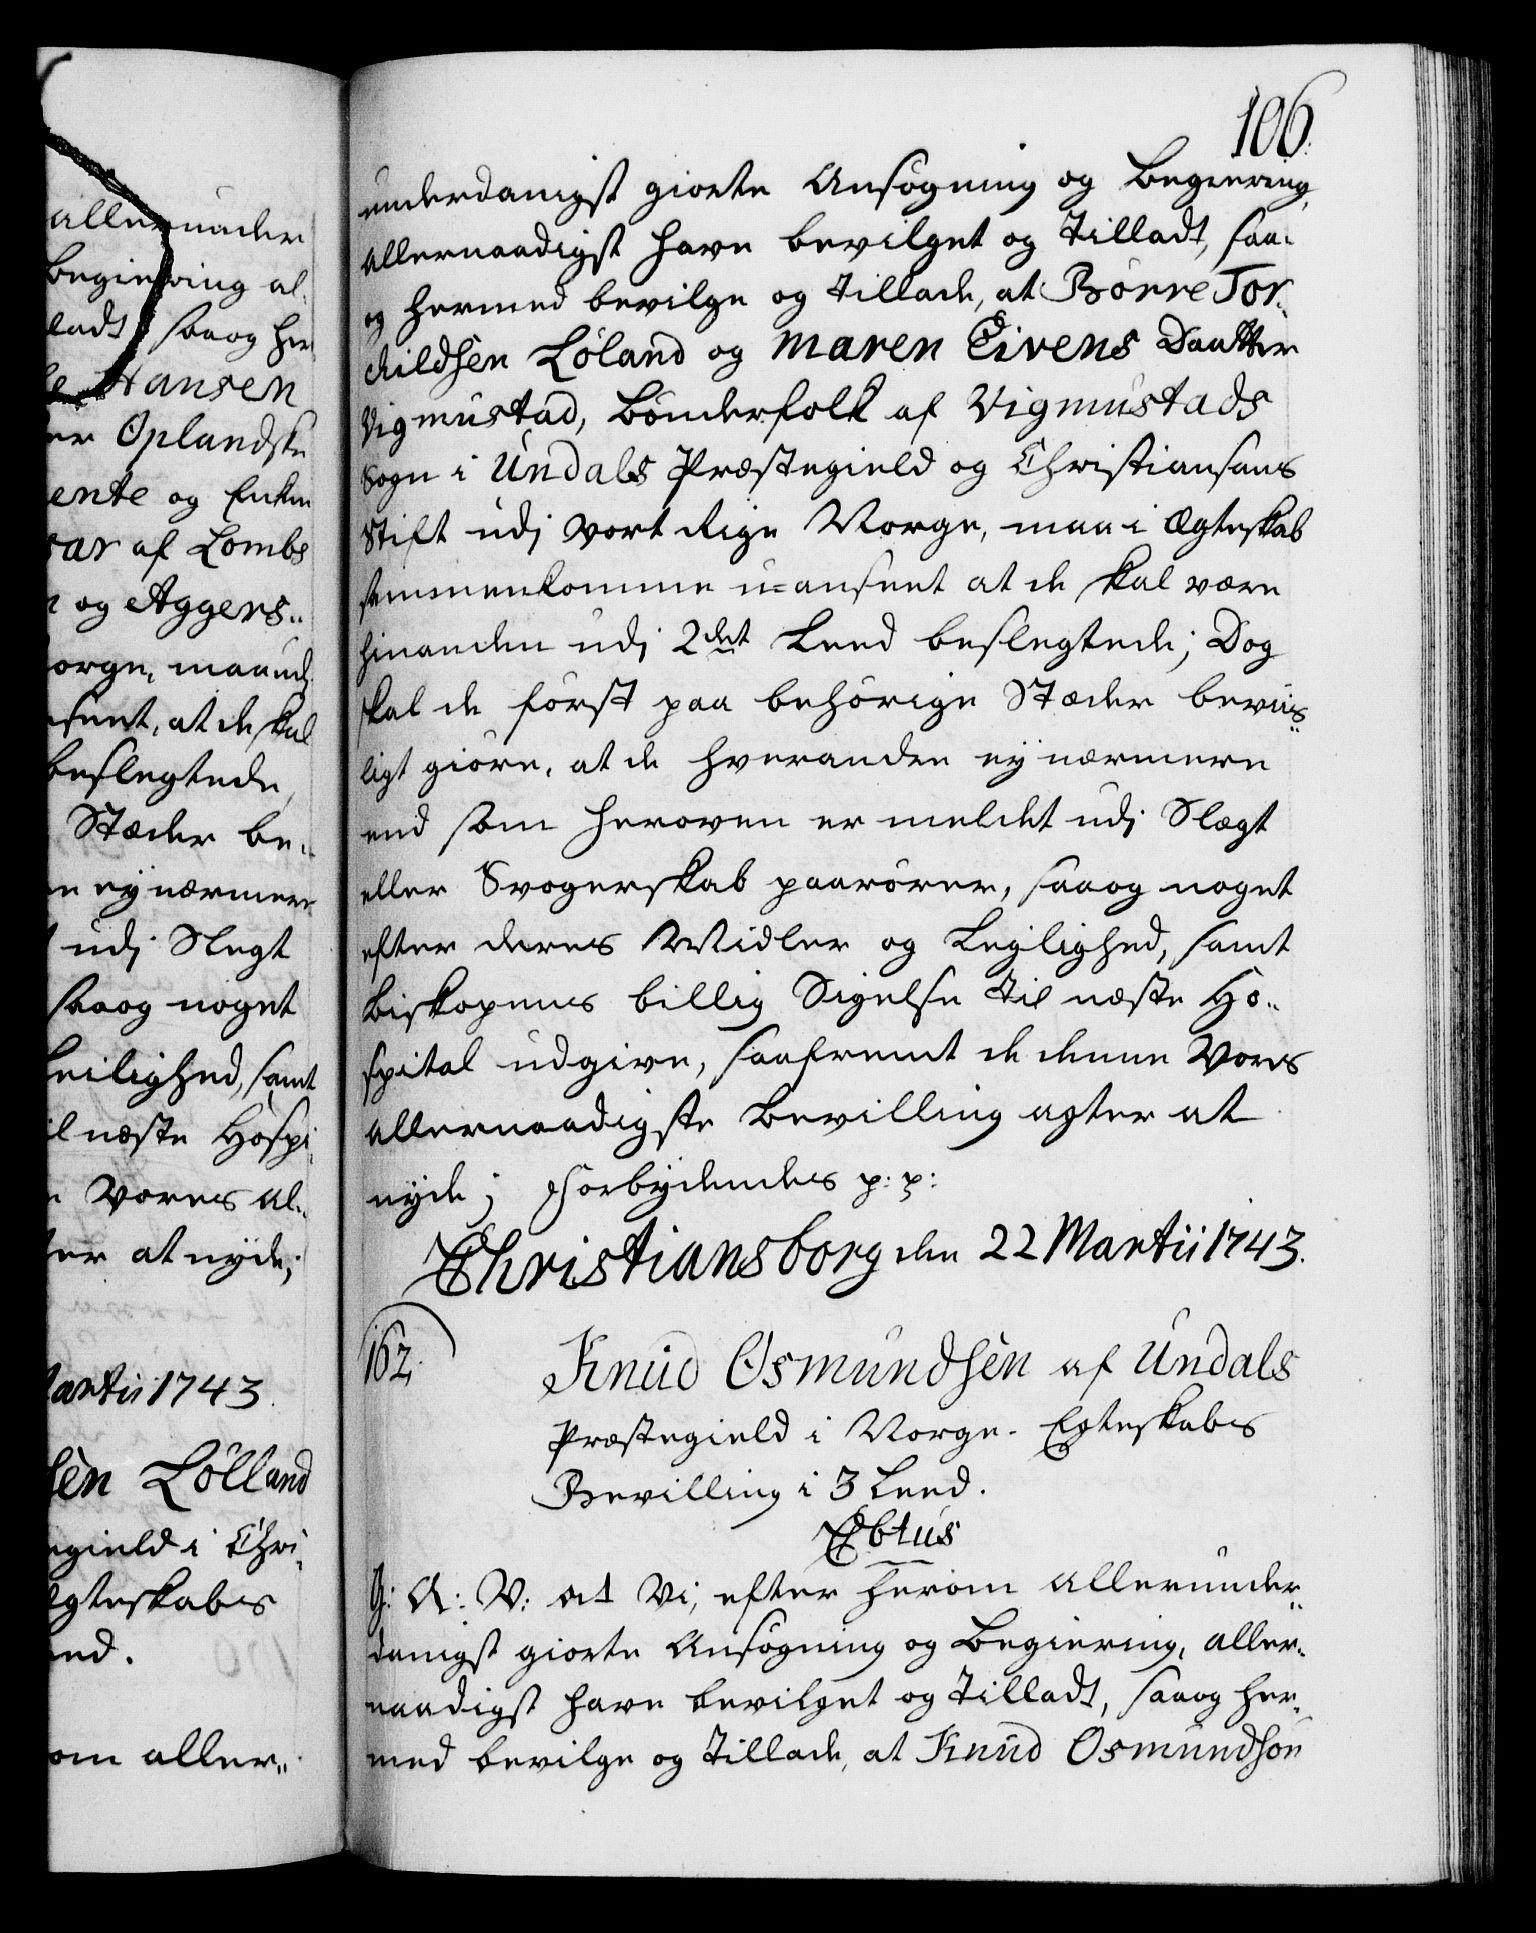 allerunder
Begiering al-
ladt, saaog her
Hansen
er Oplandske
ente og Enken
af Lombs
og Aggers-
orge, maa udj
seet, at de skal
beslegtede,
Stæder be-
ey nærmere
udj Slegt
saaog noget
Leilighed, samt
il næste Hospi-
Vores al-
ter at nyde,
Martii 1743.
sen Lölland
egield i Chri-
Egteskabs
eed.
om aller-
106.
underdanigst giorte Ansøgning og Begiering,
allernaadigst have bevilget og Tilladt, saa-
og hermed bevilge og tillade, at Börre Tor-
kildsen Löland og Maren Eivens Daatter
Vigmustad, Bønderfolk af Vigmustads
Sogn i Undals Præstegield og Christiansans
Stift udj vort Rige Norge, maa i Ægteskab
sammenkomme u-anseet at de skal være
hinanden udj 2det Leed beslegtede; Dog
skal de først paa behörige Stæder beviis-
ligt giöre, at de hverandre ey nærmere
end som heroven er meldet udj Slægt
eller Svogerskab paarörer, saaog noget
efter deres Midler og Leylighed, samt
Biskopens billig Sigelse til næste Ho-
spital udgive, saafremt de denne Vores
allernaadigste Bevilling agter at
nyde; Forbydendes p: p:
Christiansborg den 22 Martii 1743.
162.
Knud Osmundsen af Undals
Præstegield i Norge. Egteskabs
Bevilling i 3 Leed.
G: A: V: at Vi, efter herom allerunder-
danigst giorte Ansøgning og Begiering, aller-
naadigst have bevilget og Tilladt, saaog her-
med bevilge og tillade, at Knud Osmundsön